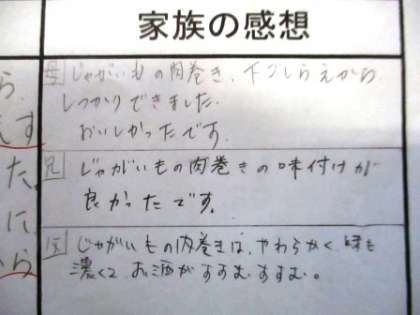 家族の感想
母 じゃがいもの肉巻き、下ごしらえから
しっかりできました。
おいしかったです。
兄 じゃがいもの肉巻きの味付けが
良かたです。
じゃがいもの肉巻きは、やわらかく、味も
濃くて お酒がすすむすすむ。
ら
す
た
に
ら